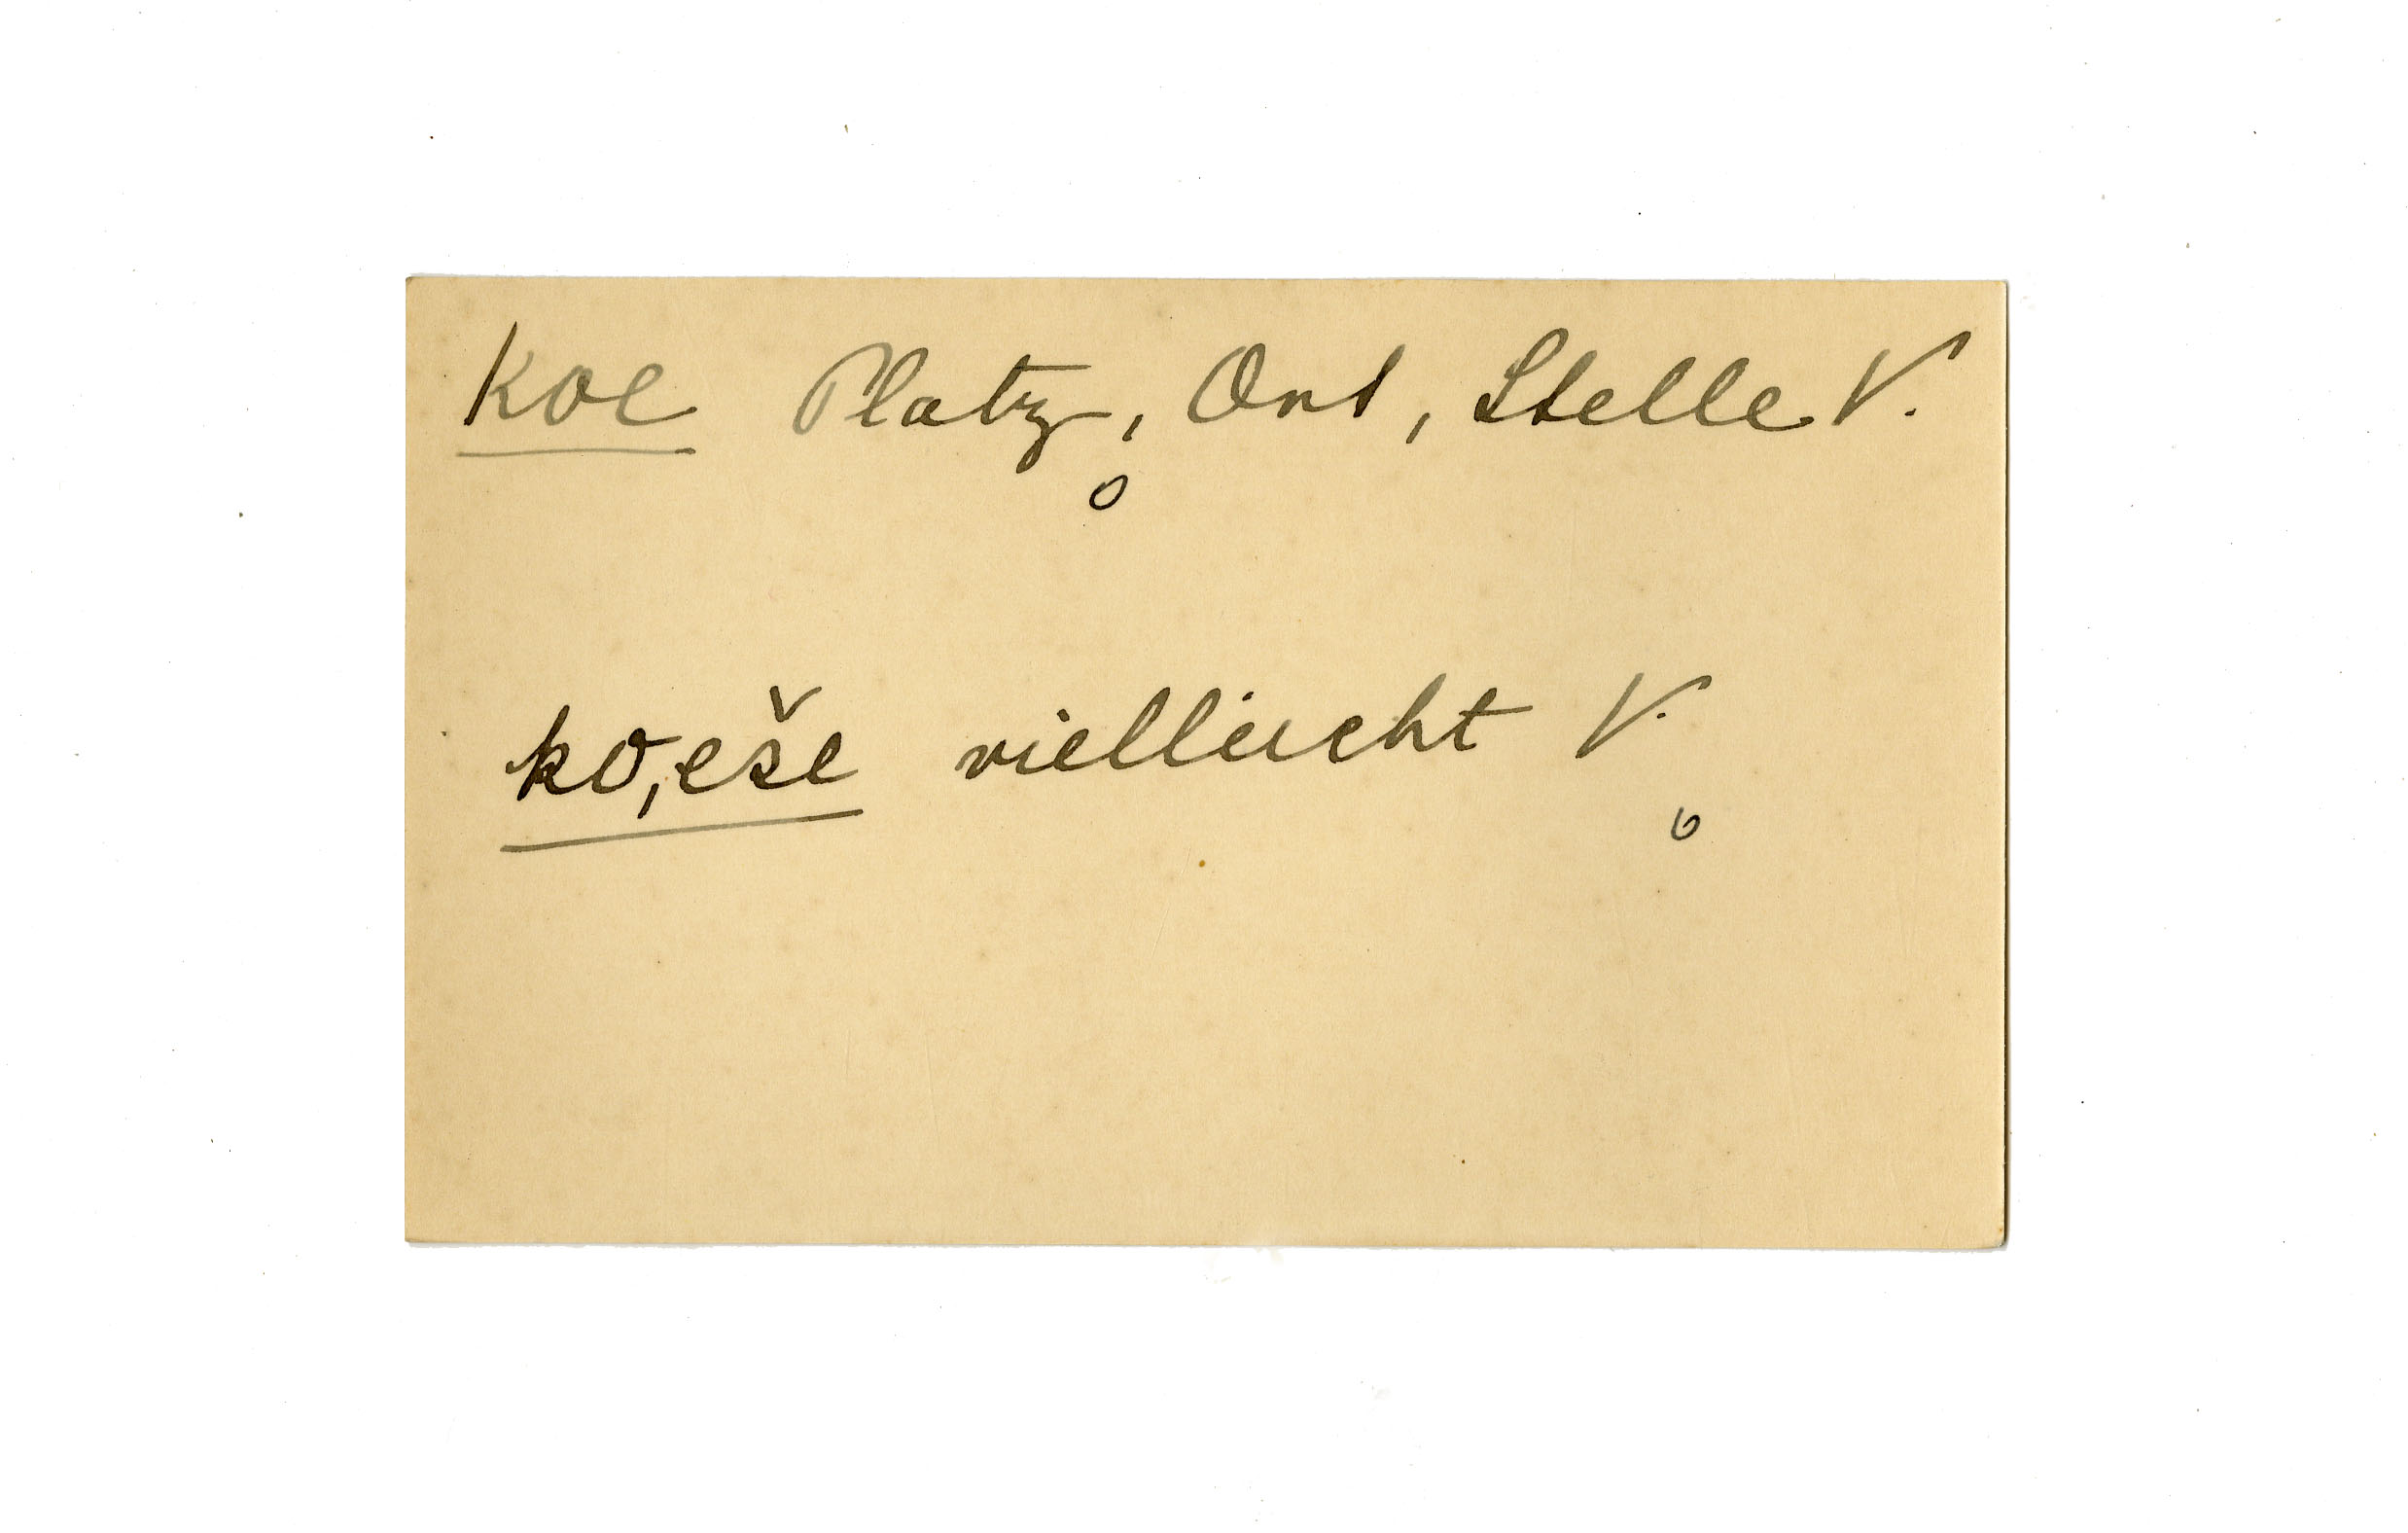 koe Platz, Ort, Stelle V.
o
ko,eše vielleicht V.
o